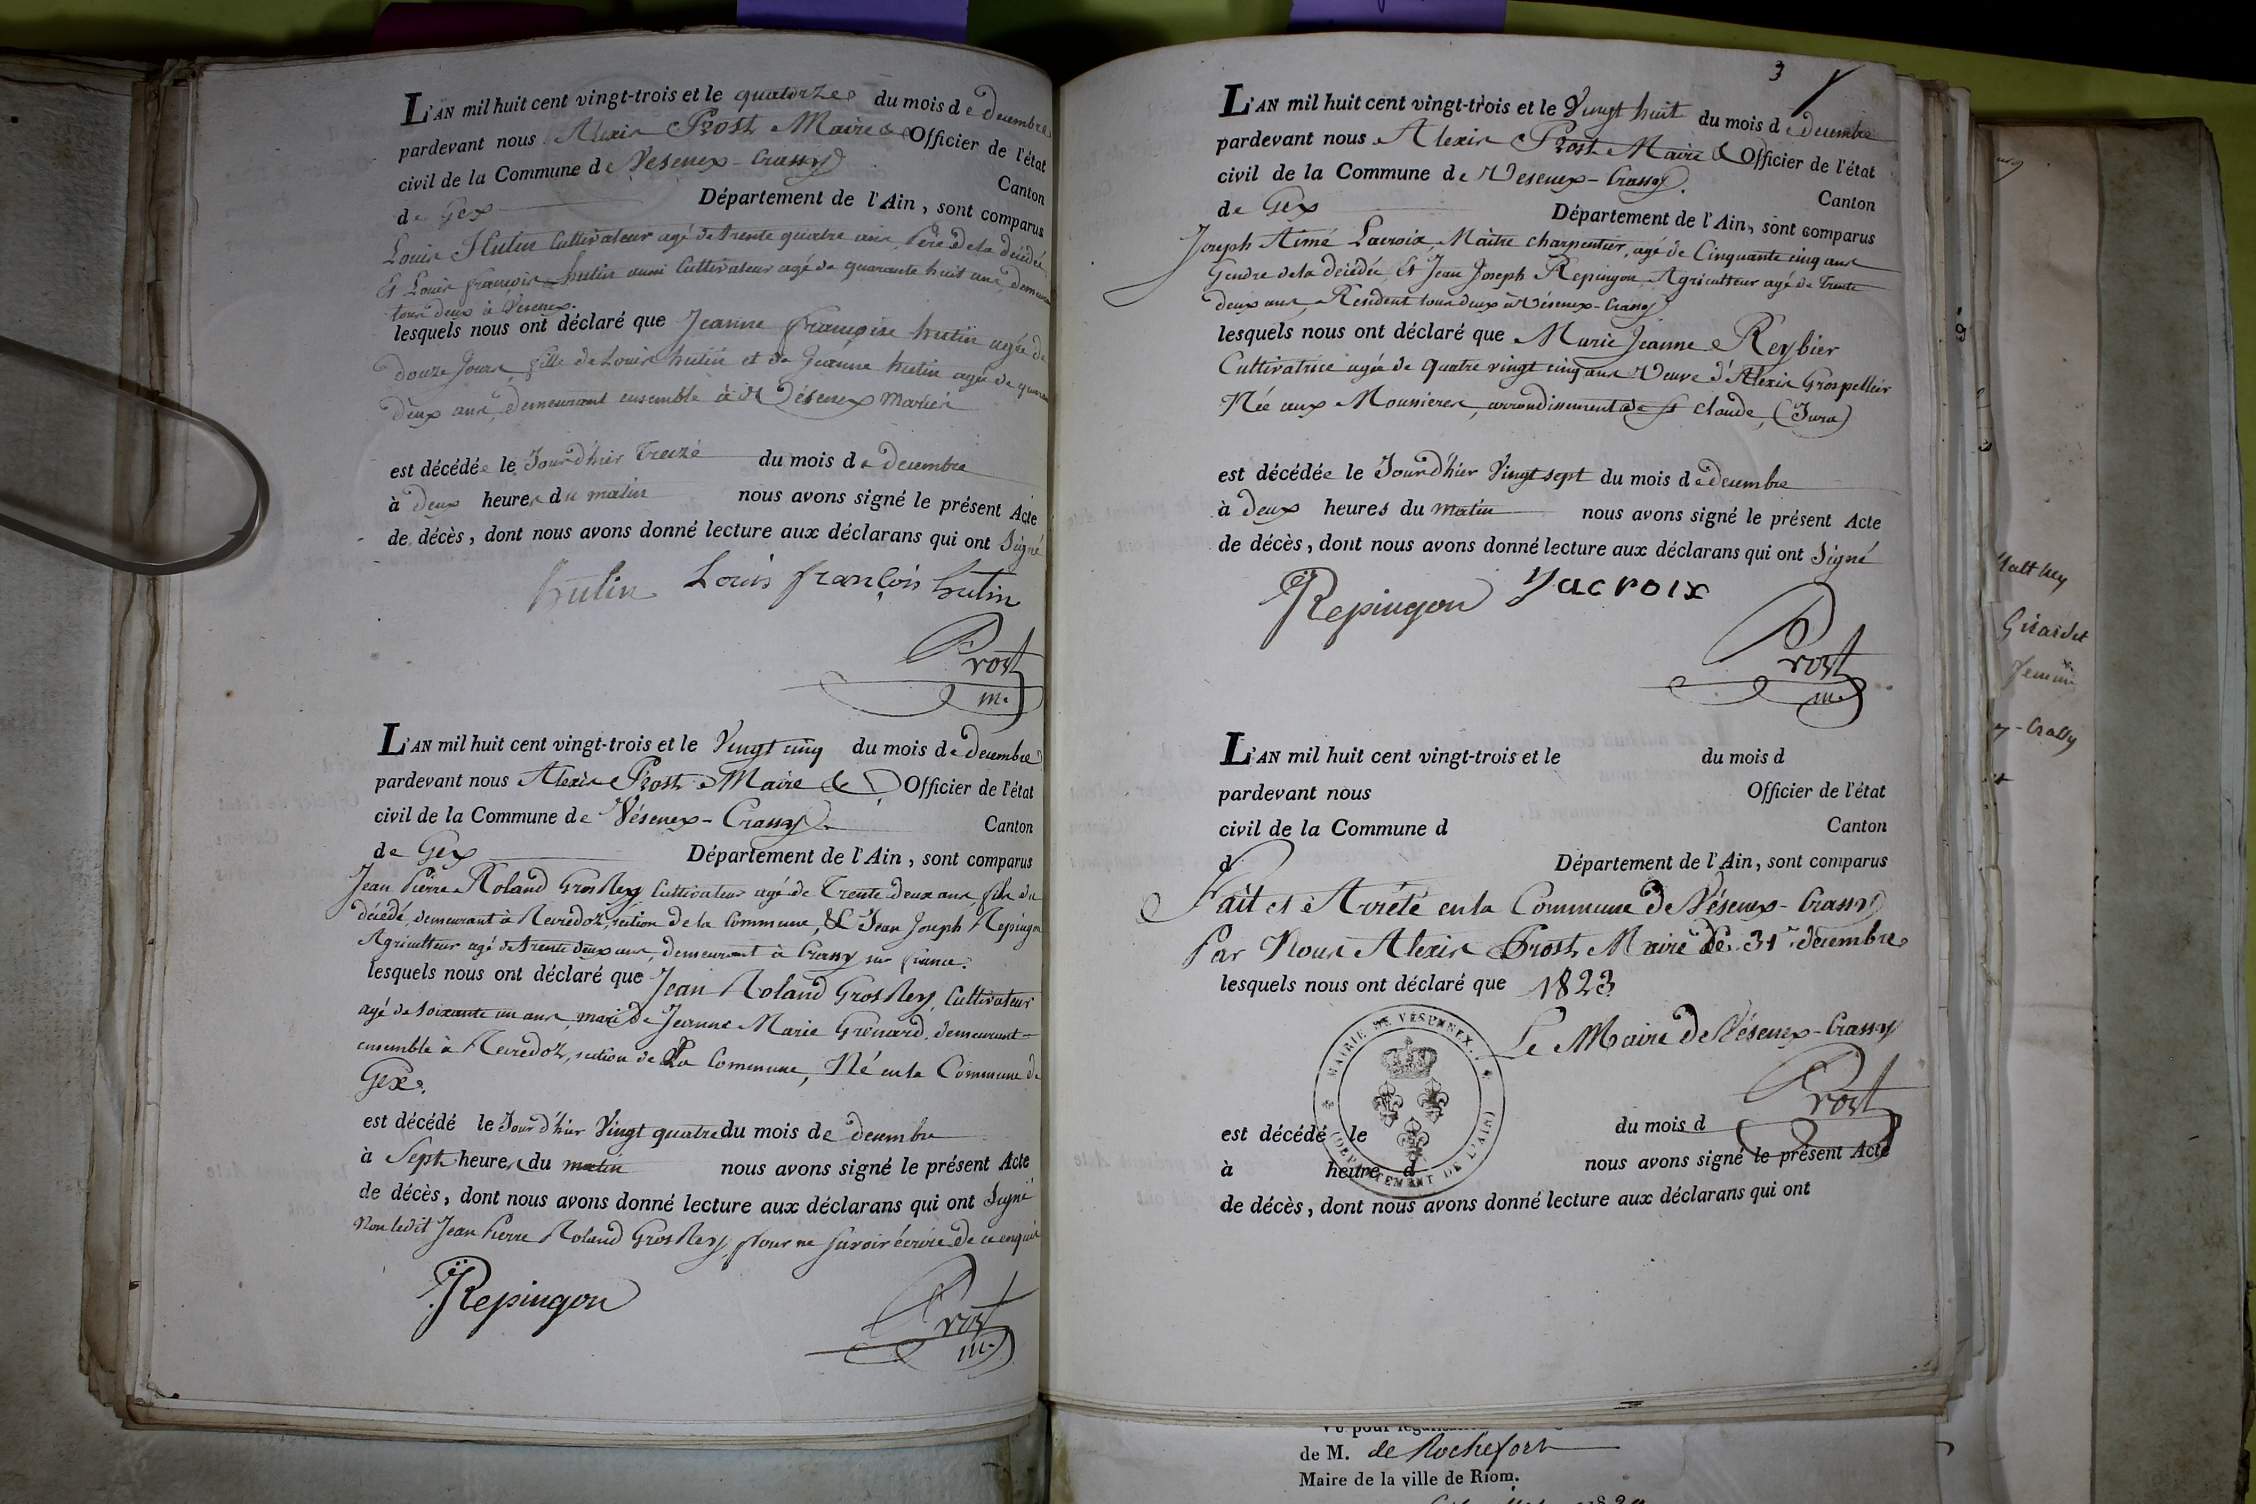 L'AN mil huit cent vingt-trois et le quatorze du mois de decembre
pardevant nous Alexis Prost Maire & Officier de l'état
civil de la Commune de Vesenex-Crassy Canton
de Gex Département de l'Ain, sont comparus
Louis Hutin Cultivateur agé de trente quatre ans, Père de la décédée
Et Louis françois hutin aussi Cultivateur agé de quarante huit ans, demeurant
tous deux à Vesenex.
lesquels nous ont déclaré que Jeanne françoise hutin agée de
douze Jours, fille de Louis hutin et de Jeanne hutin agée de quarante
deux ans, demeurant ensemble à Vésenex mariés
est décédée le Jourd'hier Treize du mois de decembre
à deux heures du matin nous avons signé le présent Acte
de décès, dont nous avons donné lecture aux déclarans qui ont Signé
hutin Louis françois hutin
Prost
m.
L'AN mil huit cent vingt-trois et le Vingt cinq du mois de decembre
pardevant nous Alexis Prost Maire & Officier de l'état
civil de la Commune de Vésenex-Crassy Canton
de Gex Département de l'Ain, sont comparus
Jean Pierre Roland GrosRey Cultivateur agé de Trente deux ans, fils du
décédé, demeurant à Reviedoz, section de la Commune, & Jean Joseph Repingon
Agriculteur agé de trente deux ans, demeurant à Crassy sur france.
lesquels nous ont déclaré que Jean Roland GrosRey, Cultivateur
agé de soixante un ans, mari de Jeanne Marie Grenard, demeurant
ensemble à Reviedoz, section de La Commune, Né en la Commune de
Gex.
est décédé le Jourd'hier Vingt quatre du mois de decembre
à Sept heures du matin nous avons signé le présent Acte
de décès, dont nous avons donné lecture aux déclarans qui ont Signé
Non ledit Jean Pierre Roland GrosRey, pour ne savoir écrire de ce enquis
JJRepingon
Prost
m.
3
L'AN mil huit cent vingt-trois et le Vingt huit du mois de decembre
pardevant nous Alexis Prost Maire & Officier de l'état
civil de la Commune de Vesenex-Crassy. Canton
de Gex Département de l'Ain, sont comparus
Joseph Aimé Lacroix, Maître charpentier, agé de Cinquante cinq ans
Gendre de la décédée Et Jean Joseph Repingon Agriculteur agé de Trente
deux ans, Résident tous deux à Vésenex-Crassy
lesquels nous ont déclaré que Marie Jeanne Reybier
Cultivatrice agée de quatre vingt cinq ans Veuve d'Alexis Grospellier
Née aux Moussieres, arrondissement de St Claude, (Jura)
est décédée le Jourd'hier Vingt sept du mois de decembre
à deux heures du matin nous avons signé le présent Acte
de décès, dont nous avons donné lecture aux déclarans qui ont Signé
JJRepingon Jacroix
Prost
m.
L'AN mil huit cent vingt-trois et le du mois d
pardevant nous Officier de l'état
civil de la Commune d Canton
d Département de l'Ain, sont comparus
Fait et Arrêté en la Commune de Vésenex-Crassy
Par Nous Alexis Prost Maire le 31 decembre
lesquels nous ont déclaré que 1823
Le Maire de Vésenex-Crassy
MAIRIE DE VESENNEX
(DEPARTEMENT DE L'AIN)
Prost
est décédé le du mois d
à heure d nous avons signé le présent Acte
de décès, dont nous avons donné lecture aux déclarans qui ont
Girardet
de M. de Rochefort
Maire de la ville de Riom.